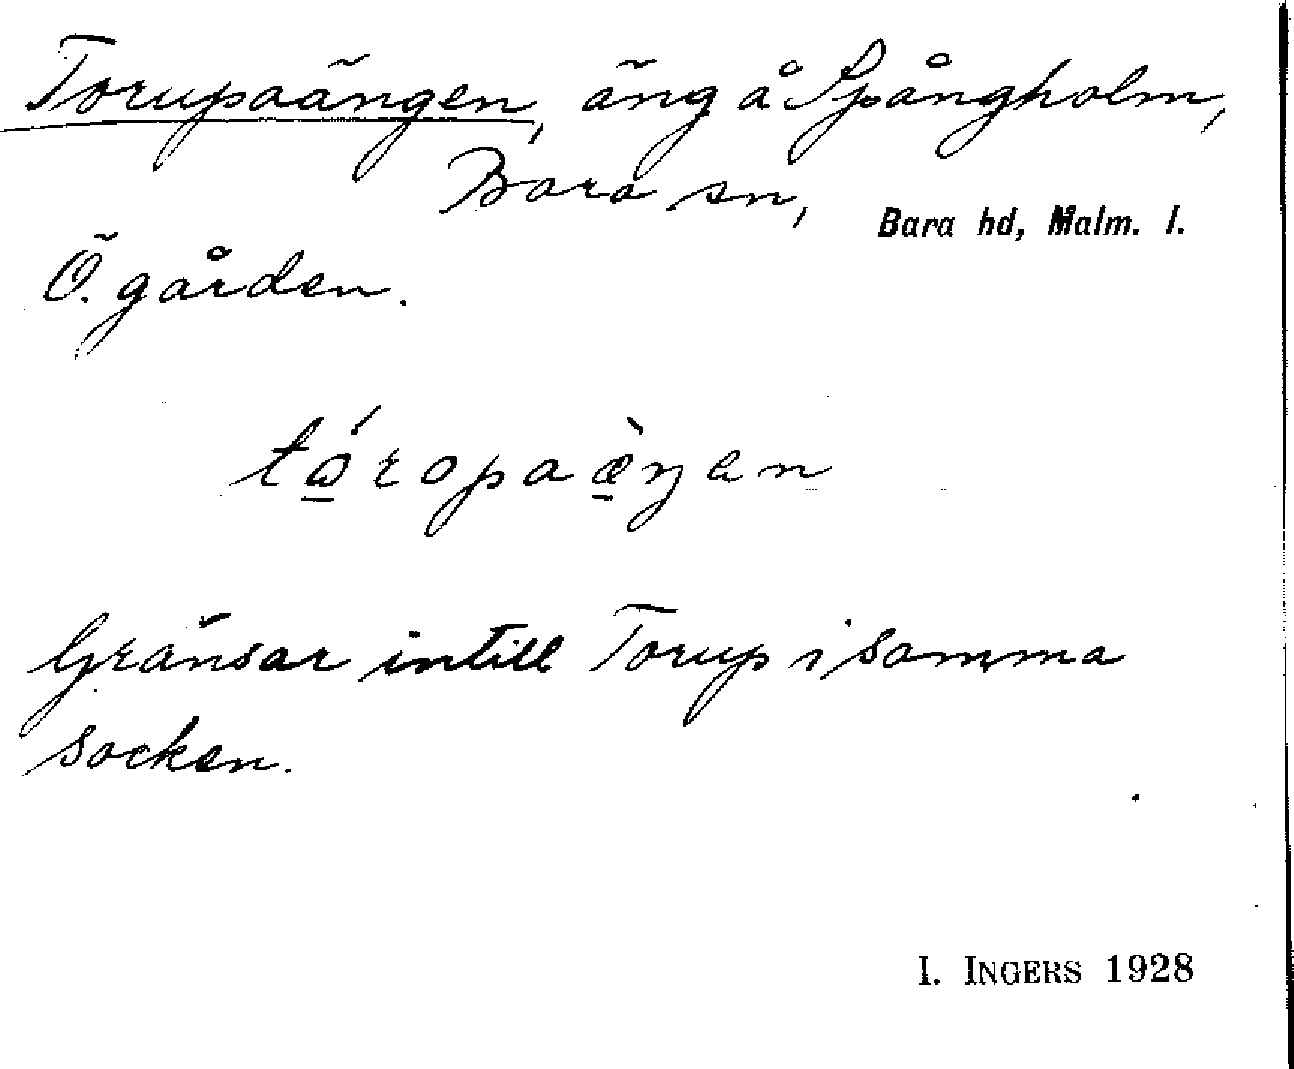 Torupaängen, äng å Spångholm,
Bara sn, Bara hd, Malm. l.
Ö. gården.
tǻ̱ropaæ̱̀ŋen
Gränsar intill Torup i samma
socken.
I. INGERS 1928